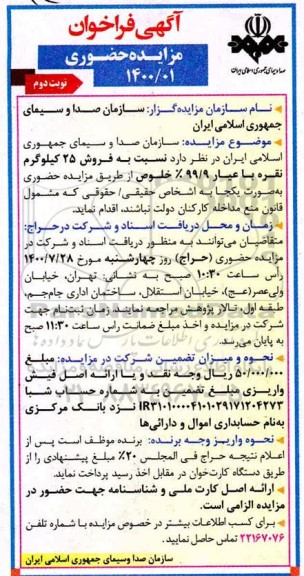 آگهی فراخوان
مزایده حضوری
۱۴۰۰/۰۱
نوبت دوم
صدا و سیمای جمهوری اسلامی ایران
نــام سازمان مزایده‌گزار: سازمان صدا و سیمای
جمهوری اسلامی ایران
موضوع مزایده: سازمان صدا و سیمای جمهوری
اسلامی ایران در نظر دارد نسبت به فروش ۲۵ کیلوگرم
نقره با عیار ۹۹/۹ ٪ خلوص از طریق مزایده حضوری
به‌صورت یکجا به اشخاص حقیقی/ حقوقی که مشمول
قانون منع مداخله کارکنان دولت نباشند، اقدام نماید.
زمان و محل دریافت اسناد و شرکت در حراج:
متقاضیان می‌توانند به منظور دریافت اسناد و شرکت در
مزایده حضوری (حراج) روز چهارشنبه مورخ ۱۴۰۰/۷/۲۸
رأس ساعت ۱۰:۳۰ صبح به نشانی: تهران، خیابان
ولی‌عصر(عج)، خیابان استقلال، ساختمان اداری جام‌جم،
طبقه اول، تالار پژوهش مراجعه نمایند. زمان ثبت‌نام جهت
شرکت در مزایده و اخذ مبلغ ضمانت راس ساعت ۱۱:۳۰ صبح
به پایان می‌رسد.
نحوه و میزان تضمین شرکت در مزایده: مبلغ
۵۰/۰۰۰/۰۰۰ ریال وجه نقد و یا ارائه اصل فیش
واریزی مبلغ تضمین به شماره حساب شبا
IR۳۱۰۱۰۰۰۰۴۱۰۱۰۲۹۱۷۱۲۰۴۲۷۳ نزد بانک مرکزی
به‌نام حسابداری اموال و دارائی‌ها
نحوه واریز وجه برنده: برنده موظف است پس از
اعلام نتیجه حراج فی المجلس ۲۰٪ مبلغ پیشنهادی را از
طریق دستگاه کارت‌خوان در مقابل اخذ رسید پرداخت نماید.
ارائه اصل کارت ملی و شناسنامه جهت حضور در
مزایده الزامی است.
برای کسب اطلاعات بیشتر در خصوص مزایده با شماره تلفن
۲۲۱۶۷۰۷۶ تماس حاصل نمایید.
سازمان صدا وسیمای جمهوری اسلامی ایران